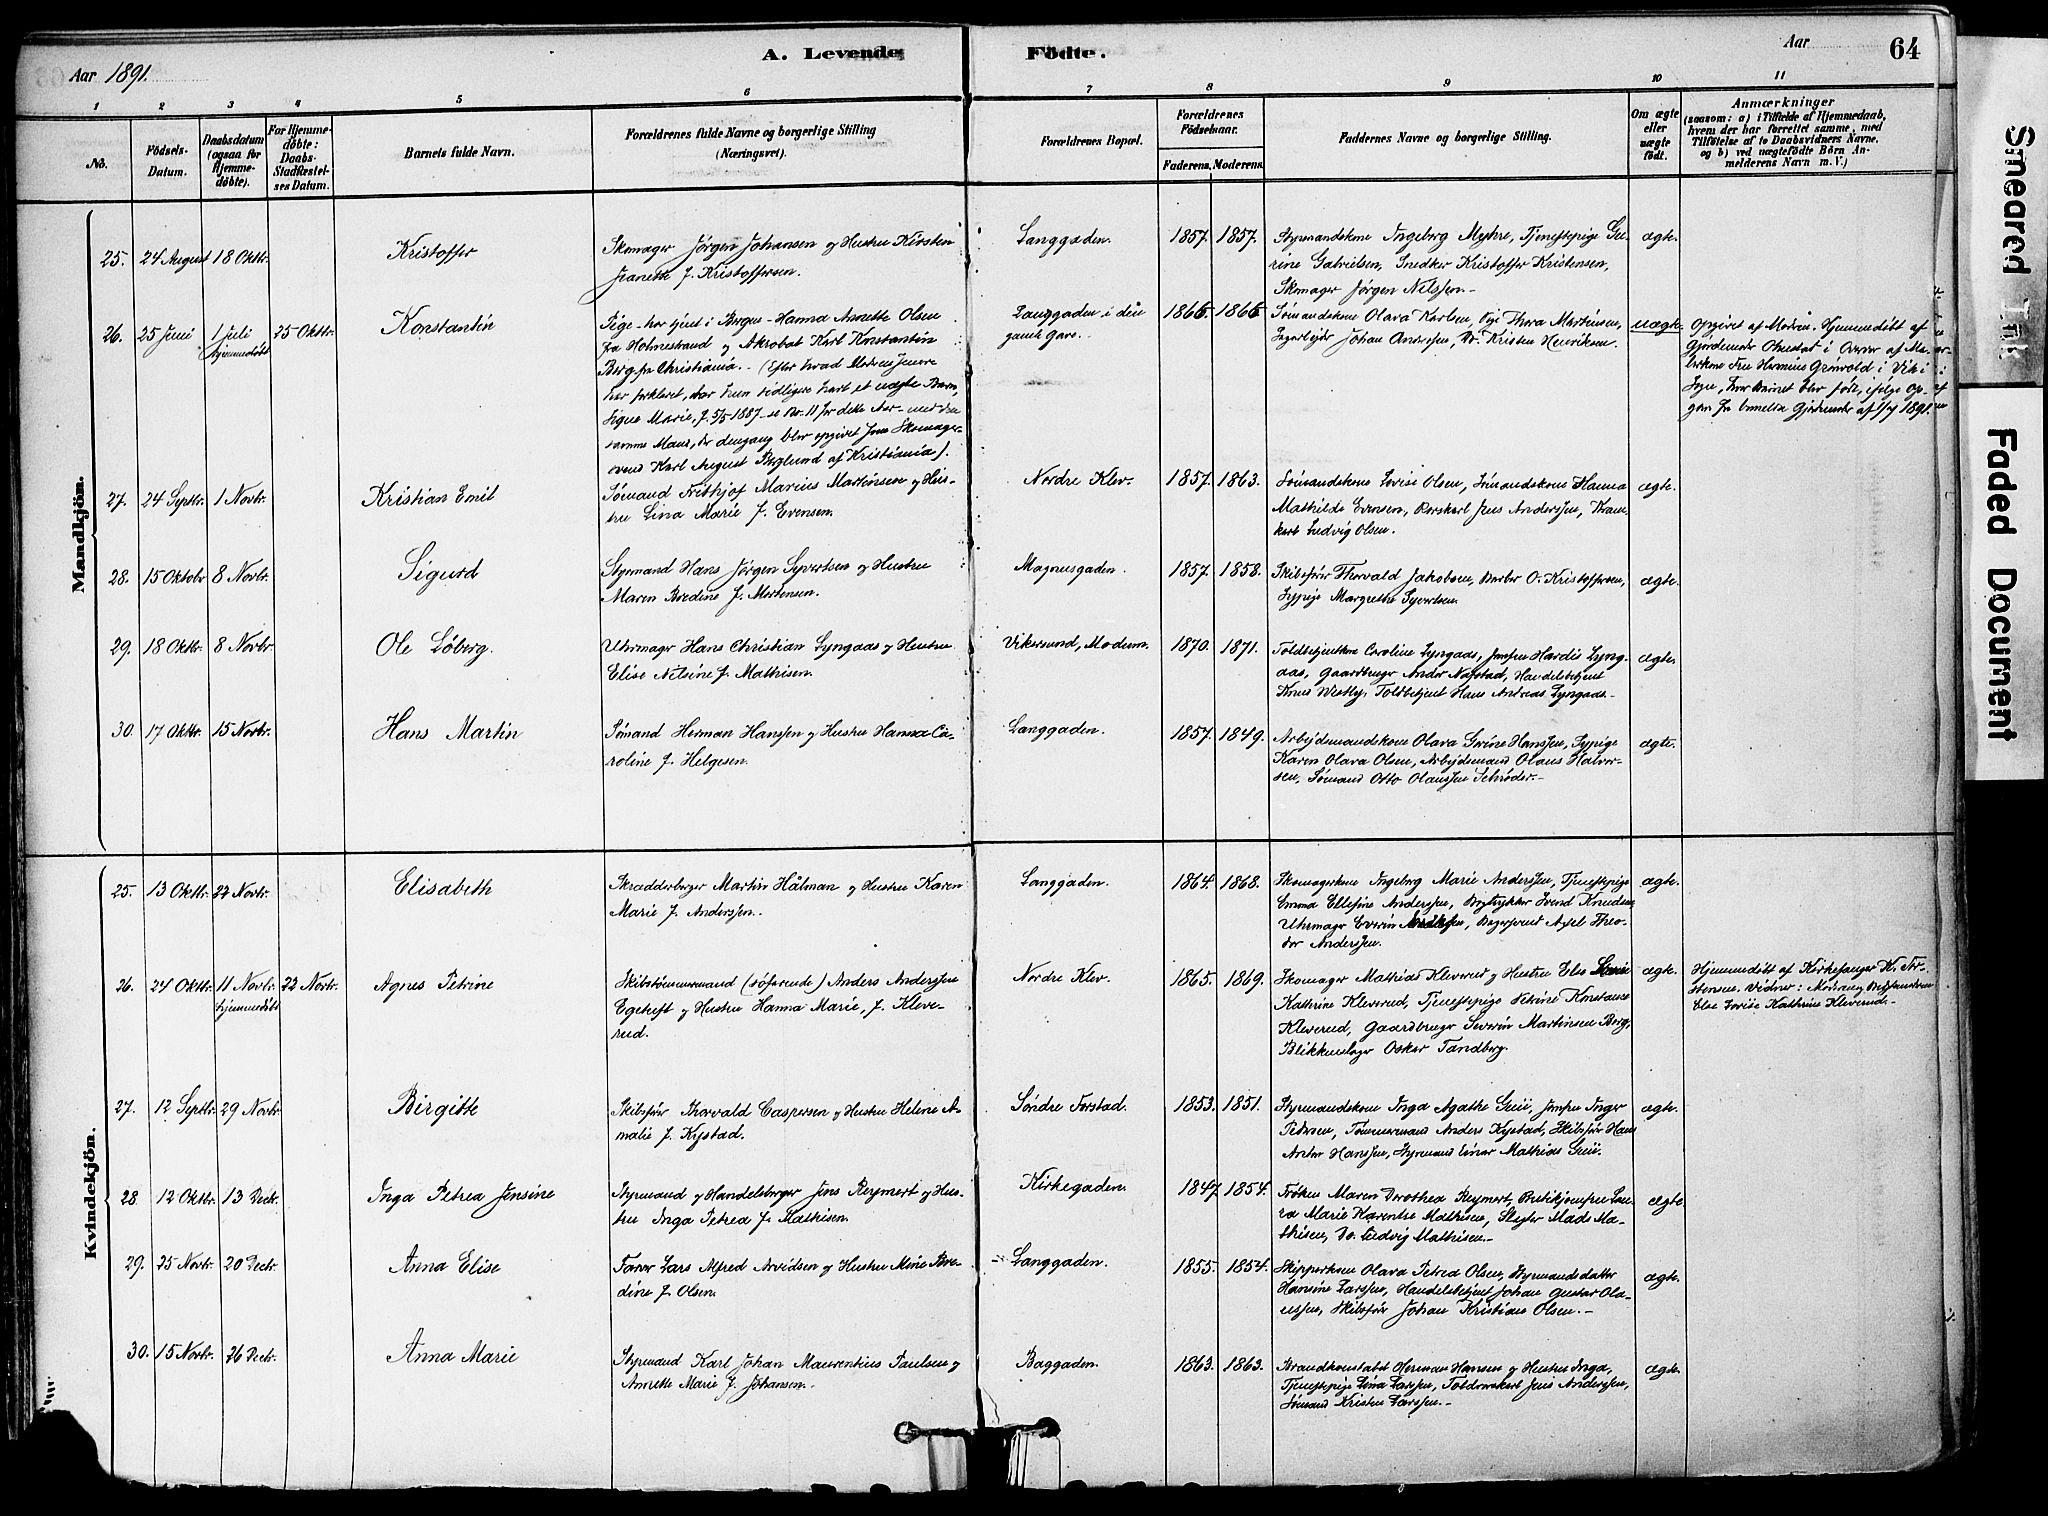 Aar 1891.
A. Levende Födte.
Aar
64
1 2 3 4 5 6 7 8 9 10 11
No.
Födsels-Datum.
Daabsdatum (ogsaa for Hjemmedöbte).
For Hjemmedöbte: Daabs-Stadfæstelses Datum.
Barnets fulde Navn.
Forældrenes fulde Navne og borgerlige Stilling (Næringsvei).
Forældrenes Bopæl.
Forældrenes Födselsaar.
Faderens. Moderens.
Faddernes Navne og borgerlige Stilling.
Om ægte eller uægte födt.
Anmærkninger
(saasom: a) i Tilfælde af Hjemmedaab, hvem der har forrettet samme, med Tilföielse af to Daabsvidners Navne, og b) ved uægtefödte Börn Anmelderens Navn m. V.)
Mandkjön.
25. 24 August 18 Oktbr. Kristoffer
Skomager Jørgen Johansen og Hustru Kirsten
Jeanette f. Kristoffersen.
Langgaden. 1857. 1857.
Styrmandskone Ingeborg Myhre, Tjenestepige Gu-
rine Gabrielsen, Snedker Kristoffer Kristensen,
Skomager Jørgen Nilssen.-
ægte.
26. 25 Juni 1 Juli hjemmedøbt 25 Oktbr. Konstantin
Pige - har tjent i Bergen - Hanna Annette Olsen
fra Holmestrand og Akrobat Karl Konstantin
Berg fra Christiania. - (Efter hvad Moderen senere
har forklaret, har hun tidligere havt et uægte Barn,
Signe Marie, f. 5/5 1887 - se No. 11 for dette Aar - med den
samme Mand, der dengang blev opgivet som Skomager-
svend Karl August Berglund af Kristiania).
Langgaden i den
gamle Gaard.
1866. 1866.
Sømandskone Olava Karlsen, Pige Thora Martinsen,
Sagarbejder Johan Andersen, Do. Kristen Henriksen.
uægte.
Opgivet af Moderen. Hjemmedøbt af
27. 24 Septbr. 1 Novbr. Kristian Emil
Sømand Frithjof Marius Martinsen og Hus-
tru Lina Marie f. Evensen.
Nordre Klev. 1857. 1863.
Sømandskone Lovise Olsen, Sømandskone Hanna
Mathilde Evensen, Jens Anderssen,
Ludvig Olsen.
ægte.
28. 15 Oktobr 8 Novbr. Sigurd
Styrmand Hans Jørgen Syvertsen og Hustru
Maren Bredine f. Mortensen.
Magnusgaden. 1857. 1858.
Skibsfører Thorvald Jakobsen, Barber O. Kristoffersen,
Sypige Margrethe Syvertsen.
ægte.
29. 18 Oktbr. 8 Novbr. Ole Løberg.
Uhrmager Hans Christian Lyngaas og Hustru
Elise Nilsine f. Mathisen.
Vikersund, Modum. 1870. 1871.
Toldbetjentkone Caroline Lyngaas, Jomfru Hardis Lyng-
aas, Gaardbruger Ander Nafstad, Handelsbetjent
Knus Westby, Toldbetjent Hans Andreas Lyngaas.-
ægte.
30. 17 Oktbr. 15 Novbr. Hans Martin
Sømand Herman Hanssen og Hustru Hanna Ca-
roline f. Helgesen.
Langgaden. 1857. 1849.
Arbejdsmandskone Olava Grine Hanssen, Sypige
Karen Olava Olsen, Arbejdsmand Olaus Halvor-
sen, Sømand Otto Olaussen Schrøder.-
ægte.
Kvindekjön.
25. 13 Oktbr. 22 Novbr. Elisabeth
Skrædderborger Martin Hålman og Hustru Karen
Marie f. Anderssen.
Langgaden. 1864. 1868.
Skomagerkone Ingeborg Marie Anderssen, Tjenestepige
Emma Ellefine Anderssen, Bogtrykker Svend Knudsen,
Uhrmager Everin, Bagersvend Axel Theo-
dor Anderssen.
ægte.
26. 24 Oktbr. 11 Novbr. hjemmedøbt 22 Novbr. Agnes Petrine
Skibstømmermand (søfarende) Anders Anderssen
Egetuft og Hustru Hanna Marie, f. Kleve-
rud.
Nordre Klev. 1865. 1869.
Skomager Mathias Kleverud og Hustru Else Lovise
Kathrine Kleverud, Tjenestepige Petrine Konstanse
Kleverud, Gaardbruger Severin Martinsen Berg,
Blikkenslager Oskar Tandberg.
ægte.
Hjemmedøbt af Kirkesanger K. Tor-
stensen. Vidner: Moder og Bedstemoderen
Else Lovise Kathrine Kleverud.-
27. 12 Septbr. 29 Novbr. Birgitte
Skibsfører Thorvald Caspersen og Hustru Helene A-
malie f. Kystad.
Søndre Forstad. 1853. 1851.
Styrmandskone Inga Agathe Guii, Jomfru Inger
Pedersen, Tømmermand Anders Kystad, Skibsfører Hans
Anton Hanssen, Styrmand Einar Mathias Guii.
ægte.
28. 12 Oktbr. 13 Decbr. Inga Petrea Jensine
Styrmand og Handelsborger Jens Reymert og Hus-
tru Inga Petrea f. Mathisen.
Kirkegaden. 1847. 1854.
Frøken Maren Dorothea Reymert, Butikjomfru Lau-
ra Marie Karentse Mathisen, Slagter Mads Ma-
thisen, Do. Ludvig Mathisen.-
ægte.
29. 25 Novbr. 20 Decbr. Anna Elise
Farver Lars Alfred Arvidsen og Hustru Mine Bre-
dine f. Olsen.
Langgaden. 1855. 1854.
Skipperkone Olava Petrea Olsen, Styrmandsdatter
Hansine Larssen, Handelsbetjent Johan Gustav Ola-
ussen, Skibsfører Johan Kristian Olsen.-
ægte.
30. 15 Novbr. 26 Decbr. Anna Marie
Styrmand Karl Johan Maurentius Paulsen og
Annette Marie f. Johansen.
Baggaden. 1863. 1863.
Brandkonstabel Herman Hansen og Hustru Inga,
Tjenestepige Lina Larssen, Toldroerkarl Jens Anderssen,
Sømand Kristen Larssen.-
ægte.
Smeared Ink
Faded Document